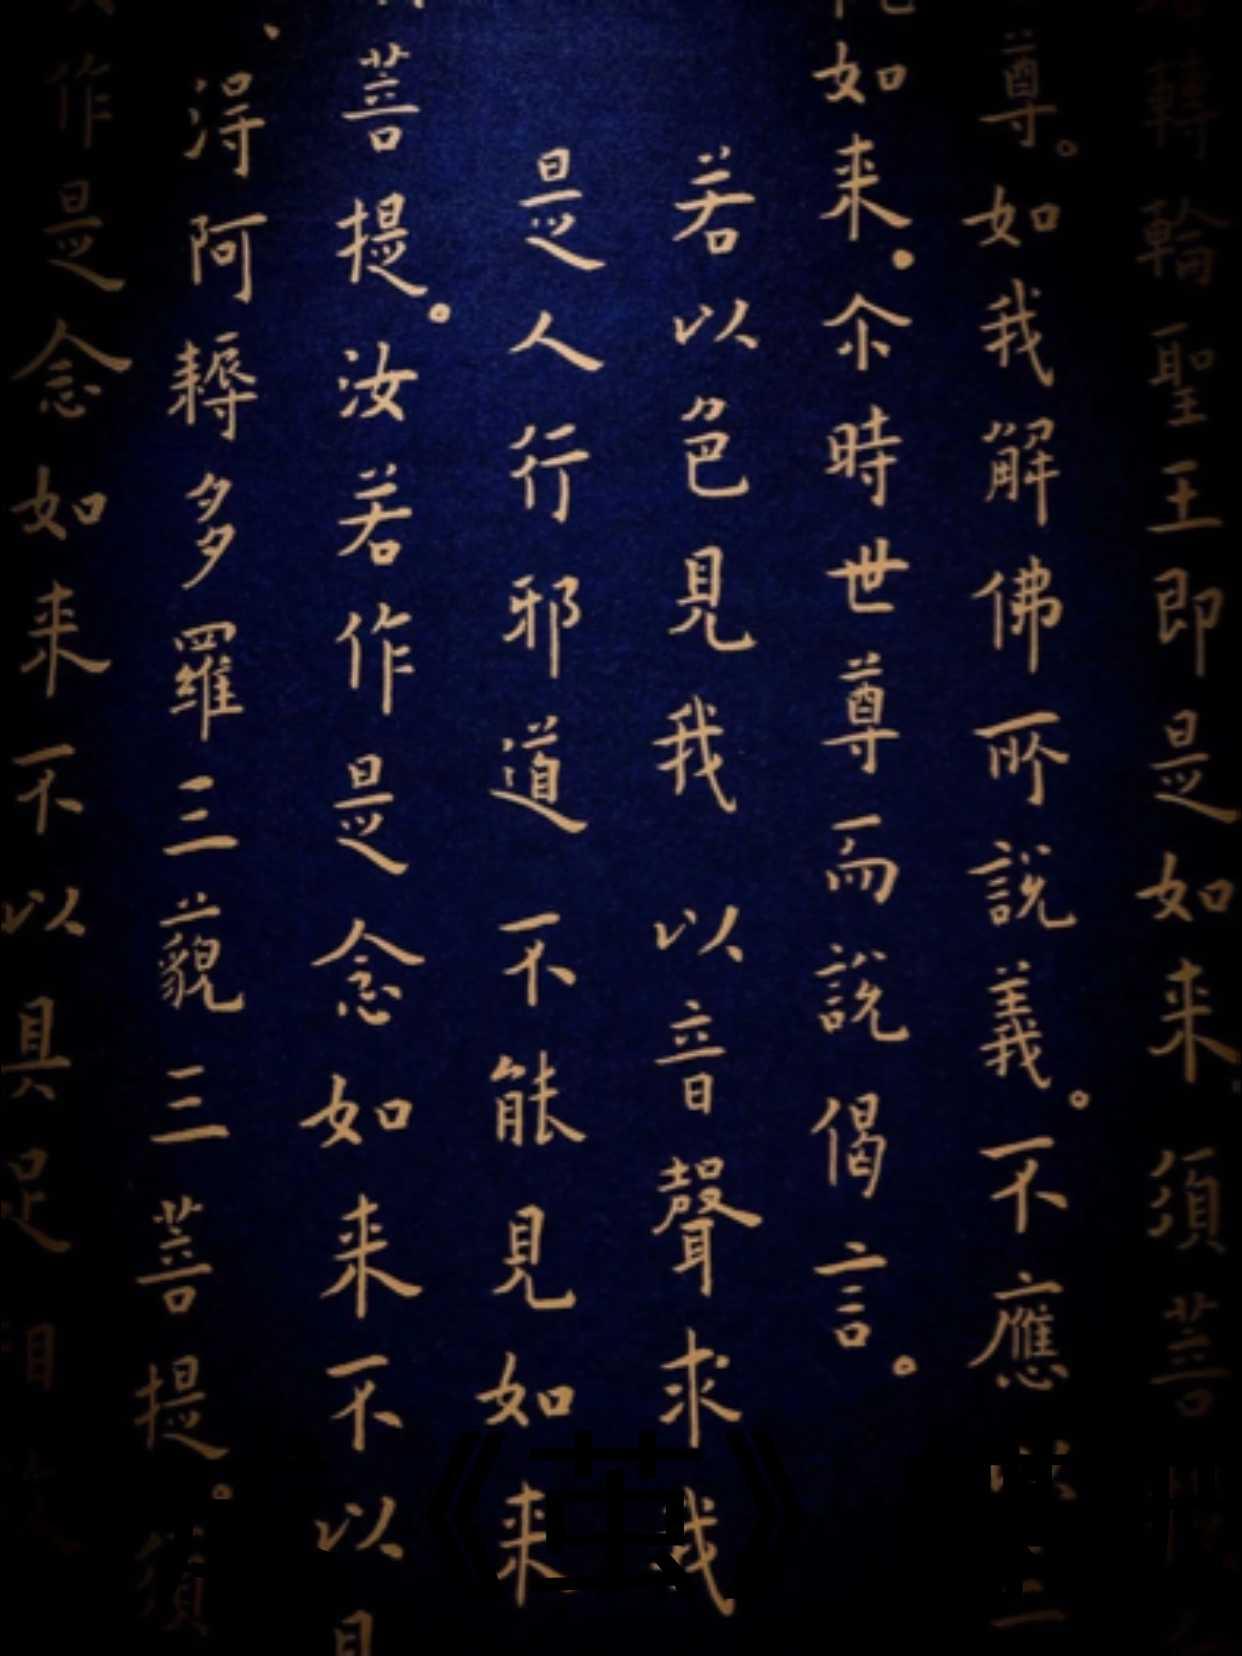 轉輪聖王即是如來 須菩
尊。如我解佛所說義。不應以三
如來。尒時世尊而說偈言。
若以色見我 以音聲求我
是人行邪道 不能見如來
菩提。汝若作是念如來不以具
、得阿耨多羅三藐三菩提。須
作是念如來不以具足相故
《茧》